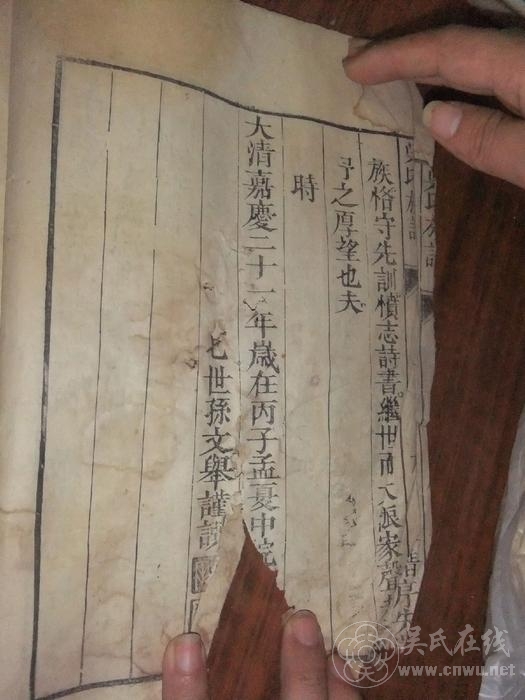 吳氏族譜
族恪守先訓憤志詩書繼世而大派家聲
予之厚望也夫
時
大清嘉慶二十一年歲在丙子孟夏中浣
七世孫文舉謹
譜序
吴氏在线
www.cnwu.net